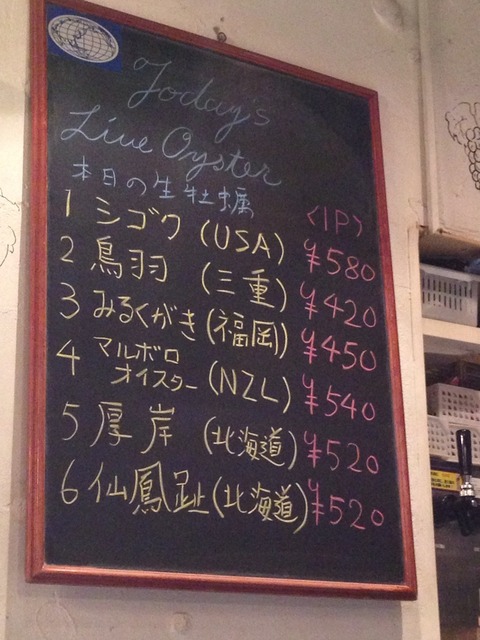 Today's
Live Oyster
本日の生牡蠣
〈1P〉
1 シゴク (USA) ¥580
2 鳥羽 (三重) ¥420
3 みるくがき (福岡) ¥450
4 マルボロオイスター (NZL) ¥540
5 厚岸 (北海道) ¥520
6 仙鳳趾 (北海道) ¥520